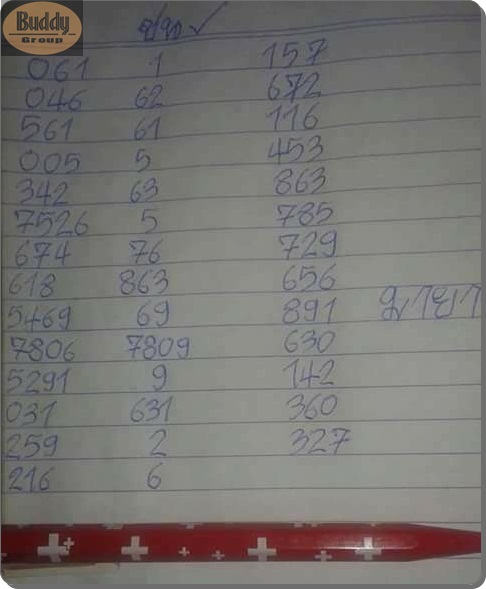 Buddy
Group
061 1 157
046 62 672
561 61 116
005 5 453
342 63 863
7526 5 785
674 76 729
618 863 656
5469 69 891 มายา
7806 7809 630
5291 9 142
031 631 360
259 2 327
216 6